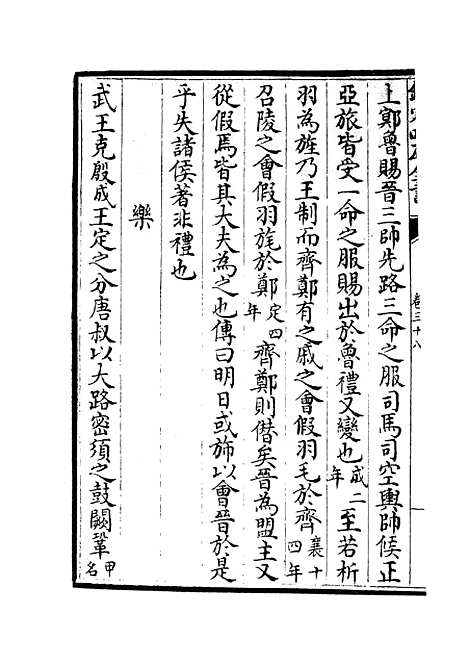 卷三十八
上鄍魯賜晉三帥先路三命之服司馬司空輿帥候正
亞旅皆受一命之服賜出於魯禮又變也成二年至若析
羽為旌乃王制而齊鄭有之戚之會假羽毛於齊襄十四年
召陵之會假羽旄於鄭定四年齊鄭則僭矣晉為盟主又
從假焉皆其大夫為之也傳曰明日或斾以會晉於是
乎失諸侯著非禮也
樂
武王克殷成王定之分唐叔以大路密須之鼓闕鞏甲名